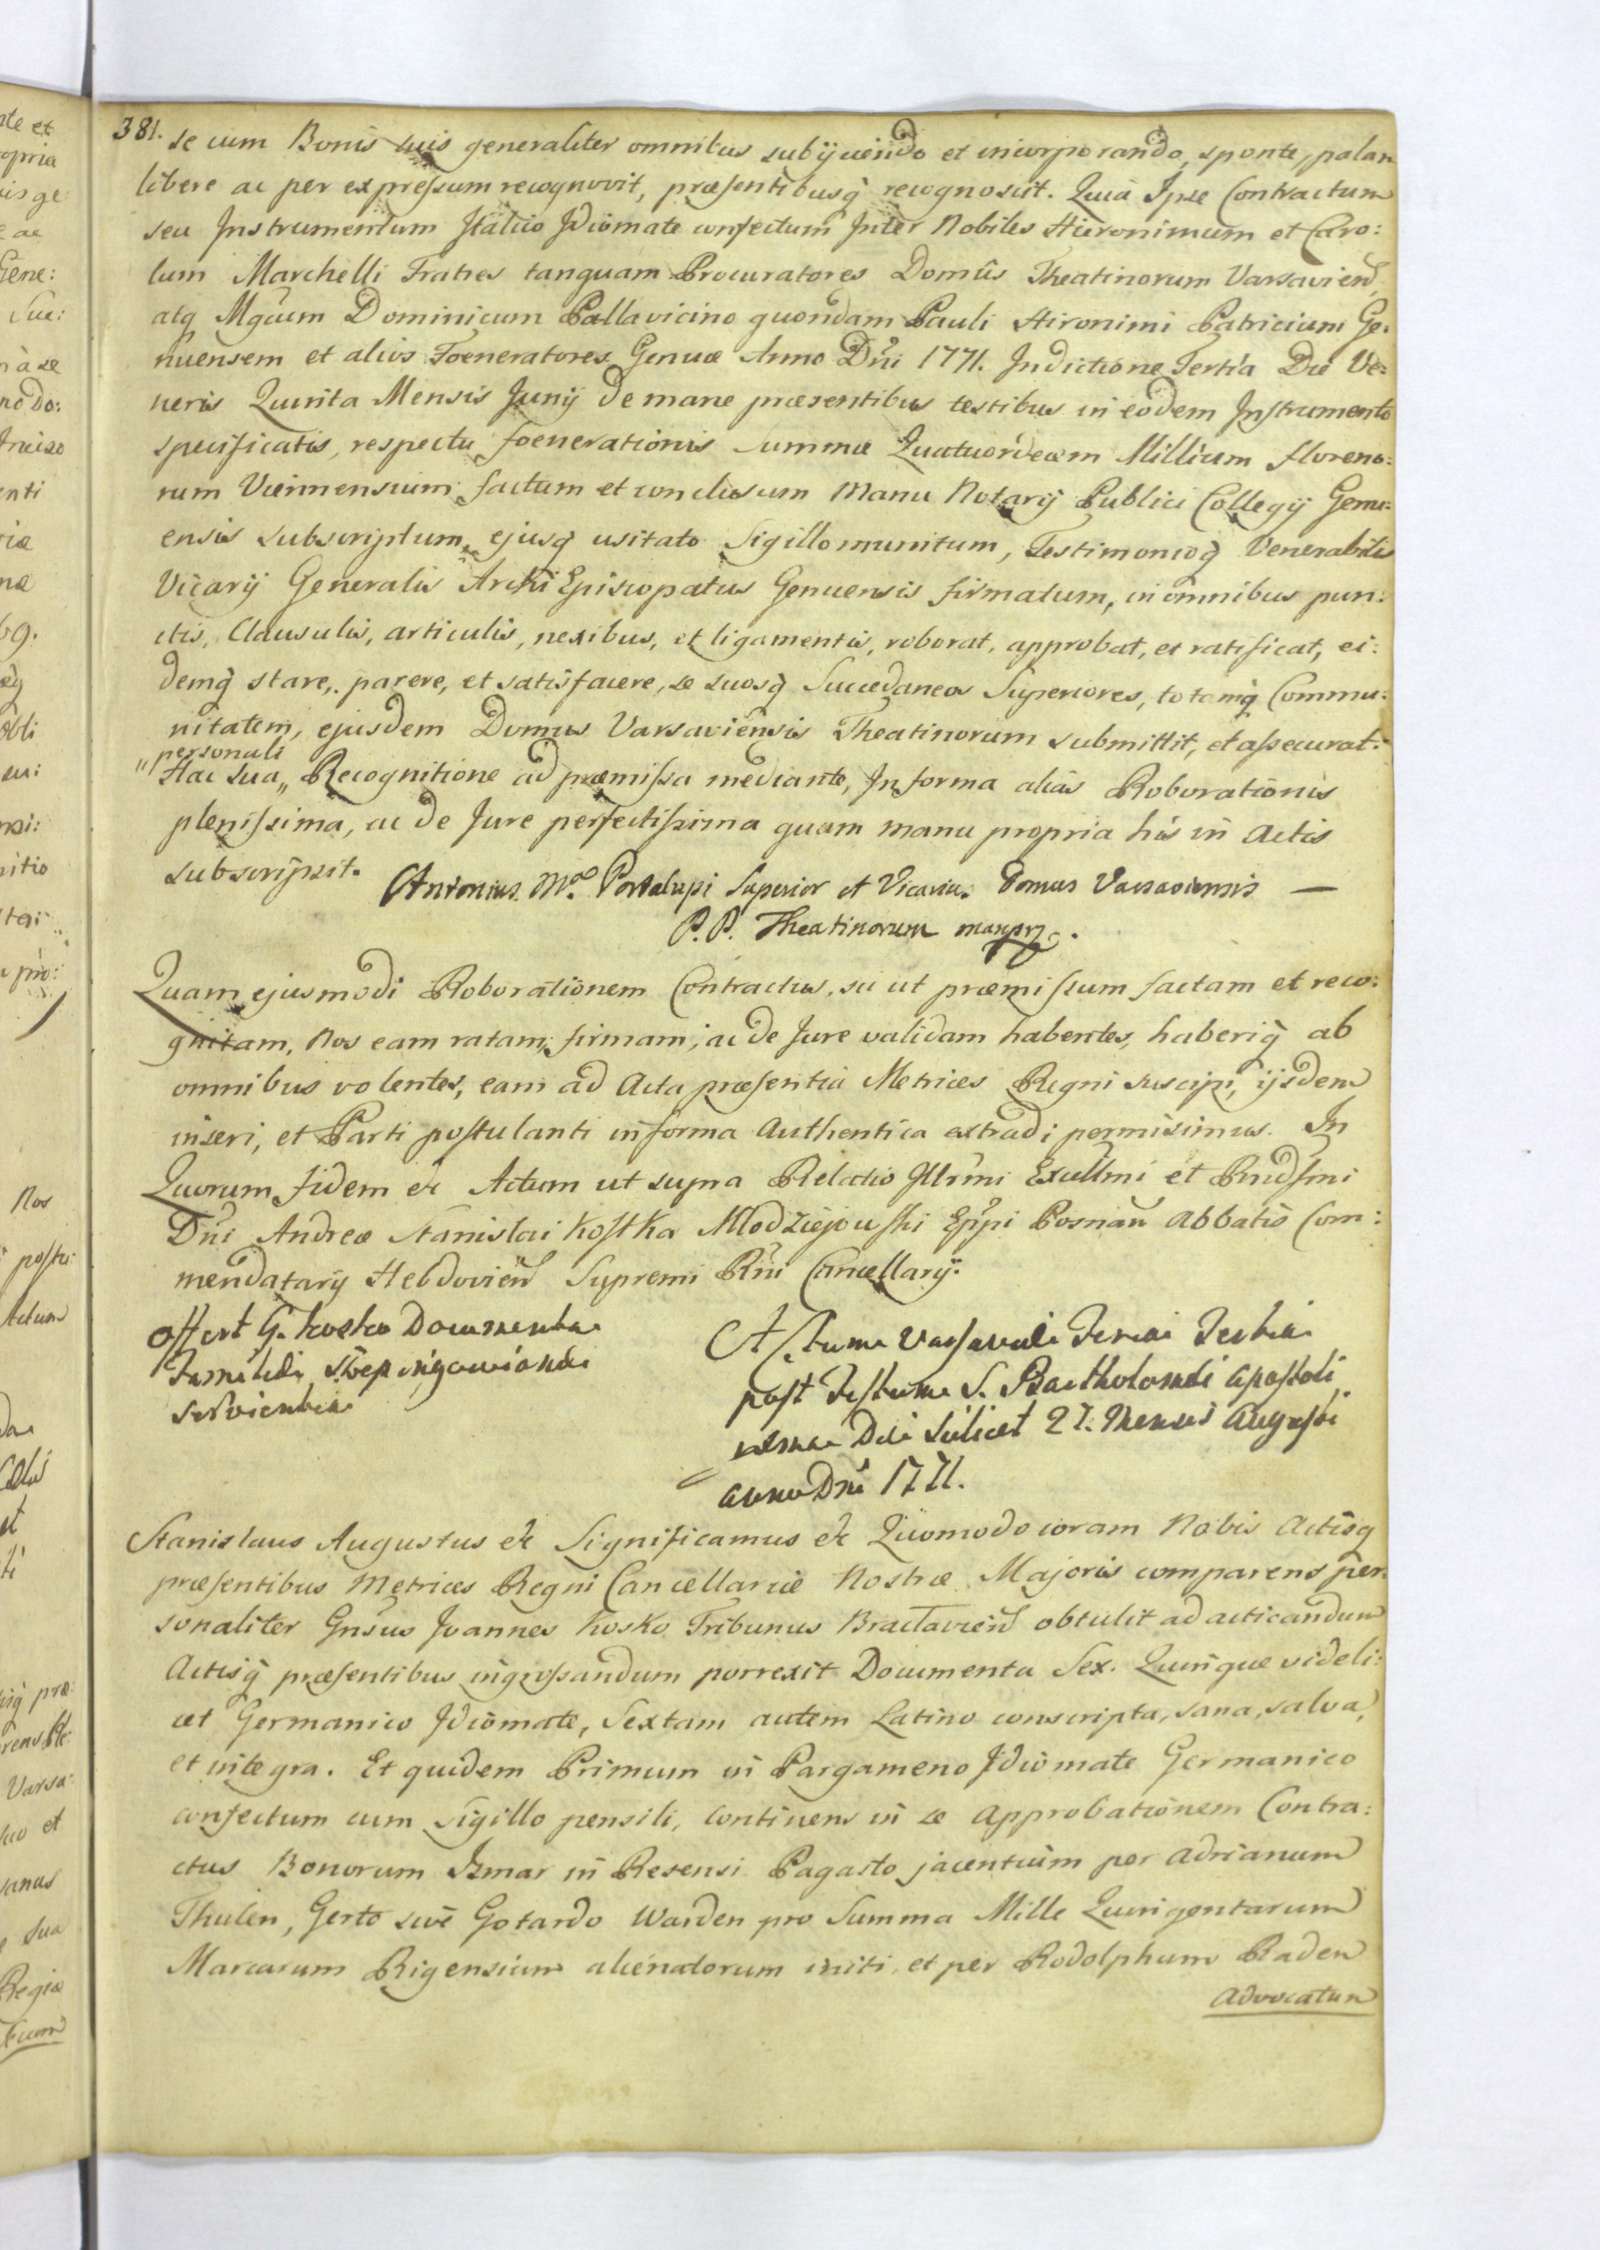 381.
se cum Bonis suis generaliter omnibus subijciendo et incorporando, sponte, palam
libere ac per expressum recognovit, præsentibusq̀ recognoscit. Quia Ipse Contractum
seu Instrumentum Italico Idiomate confectum Inter Nobiles Hieronimum et Caro:
lum Marchelli Fratres tanquam Procuratores Domûs Theatinorum Varsavien̄
atq̀ Mgcum Dominicum Pallavicino quondam Pauli Hironimi Patricium Ge:
nuensem et alios Foeneratores Genuæ Anno Dn̄i 1771. Indictione Tertia Die Ve:
neris Quinta Mensis Junij de mane præsentibus testibus in eodem Instrumento
specificatis, respectu foenerationis summæ Quatuordecem Millium floreno:
rum Viennensium factum et conclusum Manu Notarij Publici Collegij Genu:
ensis subscriptum, ejusq̀ usitato Sigillo munitum, Testimonioq̀ Venerabilis
Vicarij Generalis Archi Episcopatus Genuensis firmatum, in omnibus pun:
ctis, Clausulis, articulis, nexibus, et ligamentis, roborat, approbat, et ratificat, ei:
demq̀ stare, parere, et satisfacere, se suosq̀ Succedaneos Superiores, totamq̀ Commu:
nitatem, ejusdem Domus Varsaviensis Theatinorum submittit, et assecurat.
"personali
Hac sua „ Recognitione ad præmissa mediante, In forma alias Roborationis
plenissima, ac de Jure perfectissima quam manu propria his in Actis
subscripsit.
Antonius Ma. Portalupi Superior et Vicarius Domus Varsaviensis —
P. P. Theatinorum manupr.
Quam ejusmodi Roborationem Contractus, sic ut præmissum factam et reco:
gnitam, Nos eam ratam, firmam, ac de Jure validam habentes, haberiq̀ ab
omnibus volentes, eam ad Acta præsentia Metrices Regni suscipi, ijsdem
inseri, et Parti postulanti in forma Authentica extradi permisimus. In
Quorum fidem &c Actum ut supra Relatio Illr̄mi Excellmi et Rndsmi
Dn̄i Andreæ Stanislai Kostka Mlodziejouski Epp̄i Posnan̄ Abbatis Com:
mendatarij Hebdovien̄ Supremi Rni Cancellarij.
Offert G. Kosko Documenta
Familiæ
servientia
Actum Varsaviæ Feria Tertia
post Festum S. Bartholomæi Apostoli
Die Scilicet 27. Mensis Augusti
anno Dn̄i 1771.
Stanislaus Augustus &c Significamus &c Quomodo coram Nobis Actisq̀
præsentibus Metrices Regni Cancellariæ Nostræ Majoris comparens per:
sonaliter Gnsus Joannes Kosko Tribunus Braclavien̄ obtulit ad acticandum
Actisq̀ præsentibus ingrossandum porrexit Documenta Sex. Quinque videli:
cet Germanico Idiomate, Sextam autem Latino conscripta, sana, salva,
et integra. Et quidem Primum in Pargameno Idiomate Germanico
confectum cum Sigillo pensili, continens in se Approbationem Contra:
ctus Bonorum Ismar in Resensi Pagasto jacentium per Adrianum
Thulen, Gerto sive Gotardo Warden pro Summa Mille Quingentarum
Marcarum Rigensium alienatorum initi, et per Rodolphum Raden
Advocatum